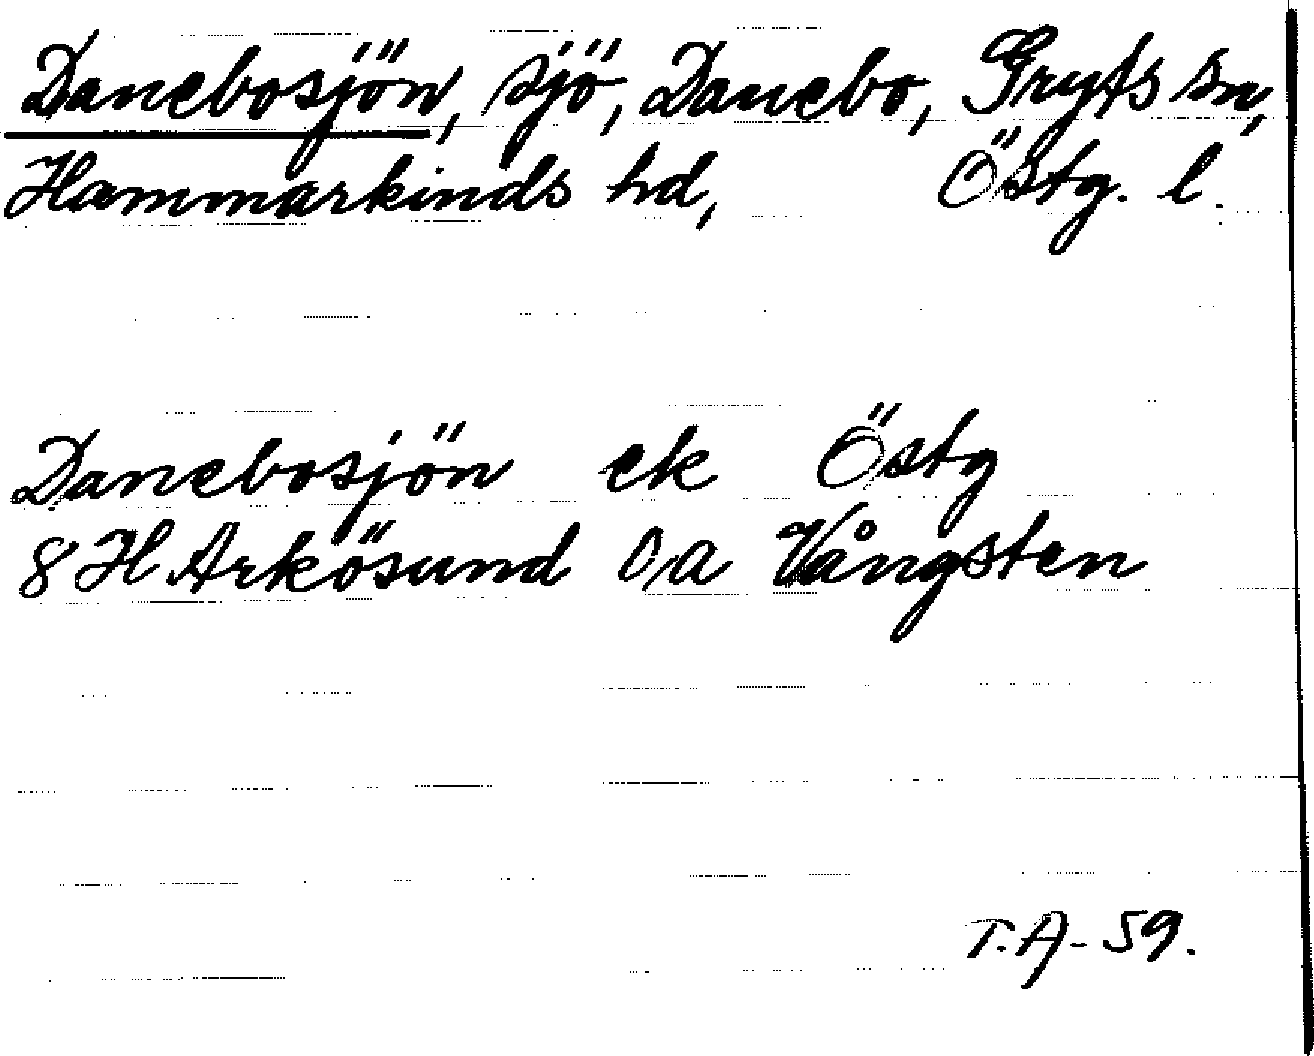 Danebosjön, sjö, Danebo, Gryts sn,
Hammarkinds hd, Östg. l.
Danebosjön ek Östg
8H Arkösund o,a Vångsten
T.A-59.